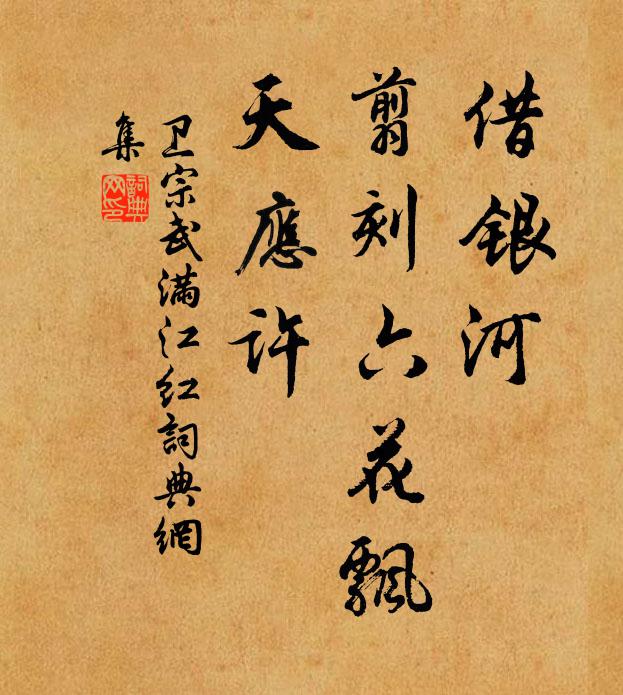 借銀河
翦刻六花飄
天應許
卫宗武满江红詞典網
集
詞典
网印